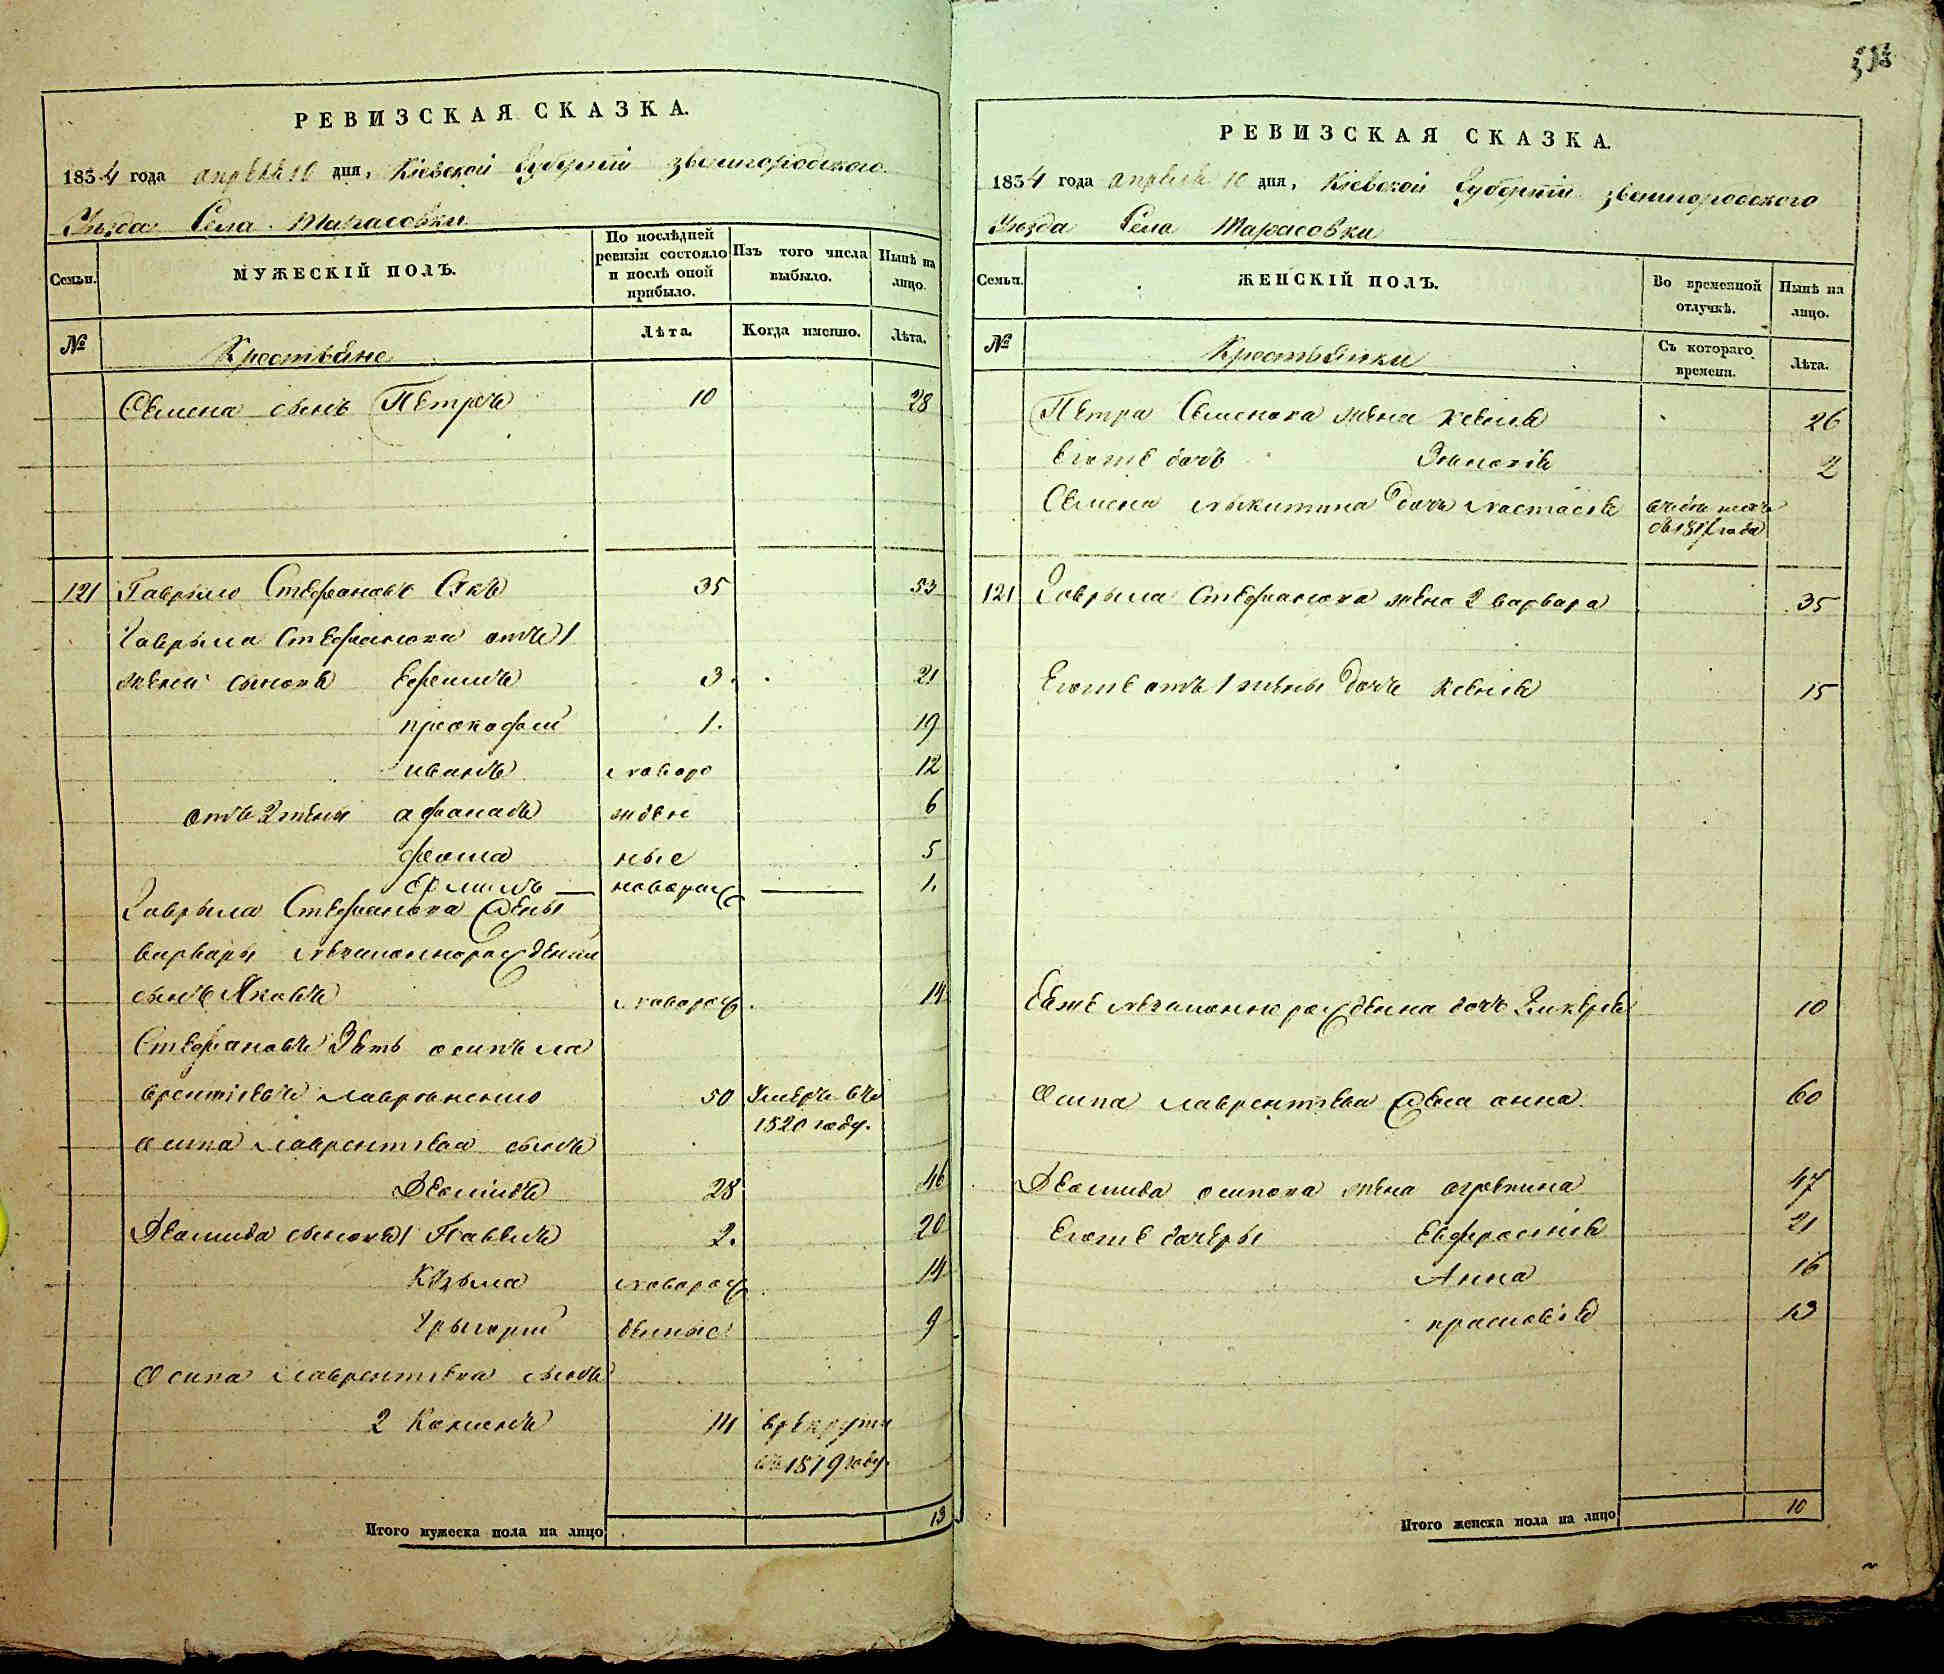 РЕВИЗСКАЯ СКАЗКА.
1834 года апреля 10 дня, Кіевской Губерніи звенигородского
Уезда Села Тарасовки
Семьи. МУЖЕСКІЙ ПОЛЪ. По послѣдней ревизіи состояло и послѣ оной прибыло. Изъ того числа выбыло. Нынѣ на лицо.
№ Крестьяне Лѣта. Когда именно. Лѣта.
Семена сынъ Петръ 10 28
121 Гаврыло Стефановъ 35 53
Гаврыла Стефанова отъ 1
жены сыновя Ефримъ 3. 21
прокофий 1. 19
иванъ новоро 12
отъ 2 жены афанасъ жден 6
фома ные 5
новорож 1.
Гаврыла Стефанова жены
варвары незаконнорожденый
сынъ Яковъ новорож. 14
Стефановъ Зять осипъ ла
врентіевъ 50 Умеръ въ
1820 году.
осипа лаврентіева сынъ
Демидъ 28 46
Демида сыновя 1 Павелъ 2. 20
Козьма новорож 14
Грыгорий денные 9
Осипа лаврентіева сынъ
2 14 врекруты
въ 1819 году.
Итого мужеска пола на лицо 13
РЕВИЗСКАЯ СКАЗКА.
1834 года апреля 10 дня, Кіевской Губерніи звенигородского
Уезда Села Тарасовки
Семьи. ЖЕНСКІЙ ПОЛЪ. Во временной отлучкѣ. Нынѣ на лицо.
№ Крестьянки Съ котораго времени. Лѣта.
Петра Семенова жена 26
Егоже дочъ 2
Семена никитина дочъ настасія года
121 Гаврыла Стефанова жена 2 варвара 35
Егоже отъ 1 жены дочъ ксенія 15
Еяже незаконно рожденна дочъ 10
Осипа лаврентіева жена анна 60
Демида осипова жена агрепина 47
Егоже дочеры Евфросинія 21
Анна 16
прасковія 13
Итого женска пола на лицо 10